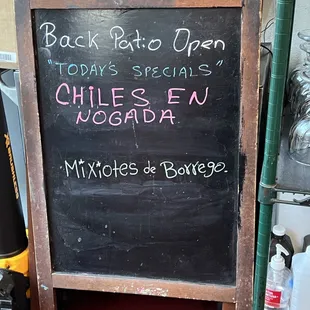 Back Patio Open
"TODAY'S SPECIALS"
CHILES EN
NOGADA
.Mixiotes de Borrego.